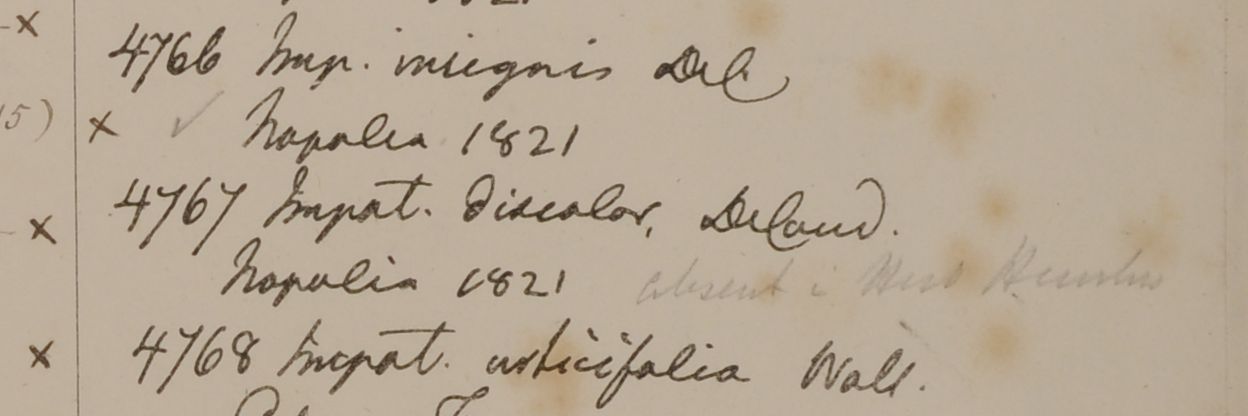 4766 Imp. insignis DeC
15) Napalia 1821
4767 Impat. discolor, DeCand.
Napalia 1821 absent in Herb
4768 Impat. urticifolia Wall.